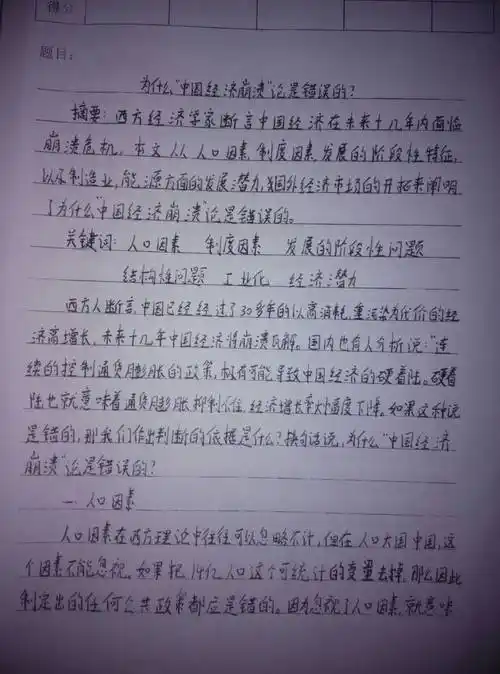 得分
题目：
为什么“中国经济崩溃”论是错误的？
摘要：西方经济学家断言中国经济在未来十几年内面临
崩溃危机。本文从人口因素，制度因素，发展的阶段性特征，
以及制造业，能源方面的发展潜力，国外经济市场的开拓来阐明
了为什么“中国经济崩溃”论是错误的。
关键词：人口因素 制度因素 发展的阶段性问题
结构性问题 工业化 经济潜力
西方人断言，中国已经经过了30多年的以高消耗，重污染为代价的经
济高增长，未来十几年中国经济将崩溃瓦解。国内也有人分析说：“连
续的控制通货膨胀的政策，极有可能导致中国经济的硬着陆。硬着
陆也就意味着通货膨胀抑制不住，经济增长率大幅度下降。如果这种说
是错的，那我们作出判断的依据是什么？换句话说，为什么“中国经济
崩溃”论是错误的？
一.人口因素
人口因素在西方理论中往往可以忽略不计，但在人口大国中国，这
个因素不能忽视。如果把14亿人口这个可统计的变量去掉，那么因此
制定出的任何公共政策都应是错的。因为忽视了人口因素，就意味